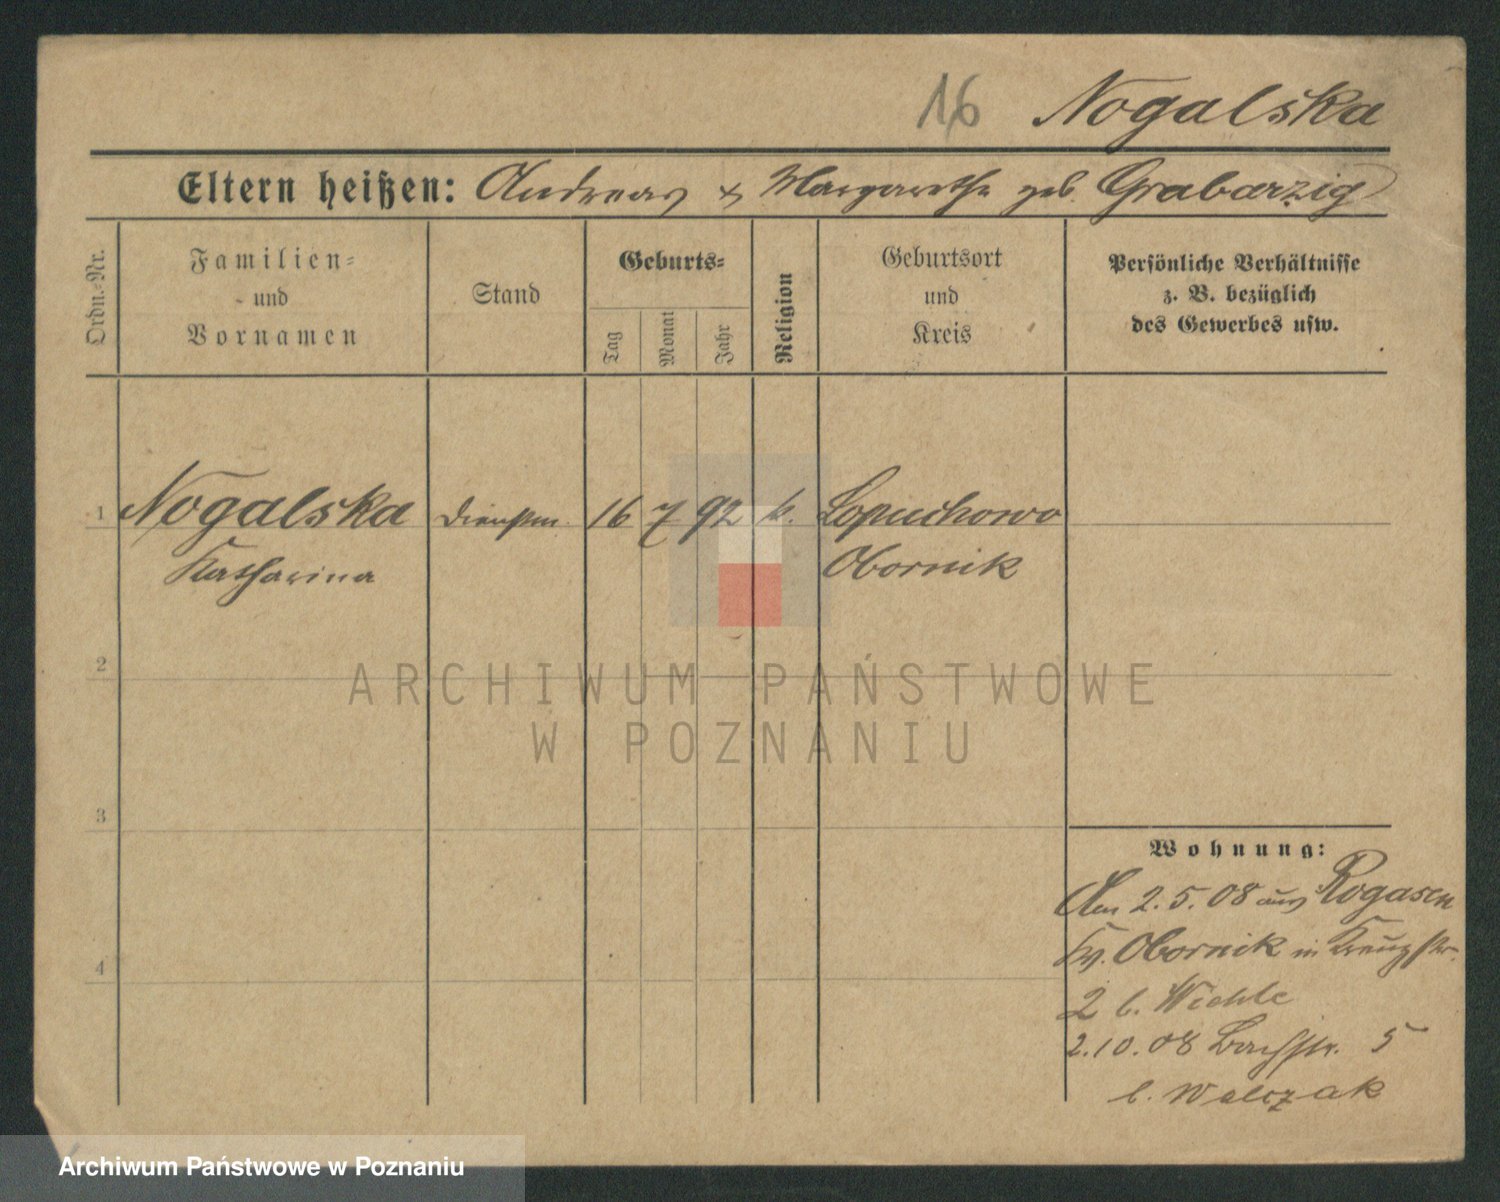 16 Nogalska
Eltern heißen: Andreas & Margarethe geb. Grabarzig
Ordn.-Nr.
Familien-
und
Vornamen
Stand
Geburts-
Tag
Monat
Jahr
Religion
Geburtsort
und
Kreis
Persönliche Verhältnisse
z. B. bezüglich
des Gewerbes usw.
1 Nogalska Dienstm. 16 7 92 k. Lopuchowo
Katharina Obornik
2
ARCHIWUM PAŃSTWOWE
W POZNANIU
3
Wohnung:
Am 2.5.08 aus Rogasen
Kr. Obornik in Kreuzstr.
4
2 b. Wichle
2.10.08 Bachstr. 5
b. Walczak
Archiwum Państwowe w Poznaniu